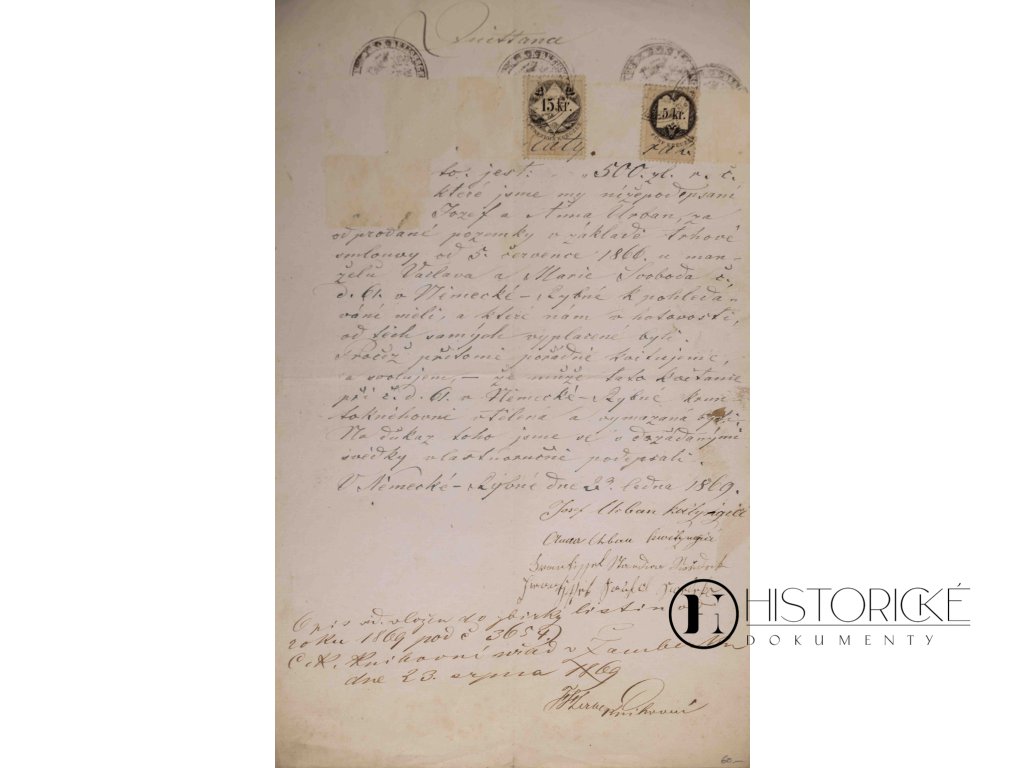 Quittance
15 kr.
5 kr.
to jest: 500 zl. r. č.
které jsme my nížepodepsaní
Jozef a Anna Urban, za
odprodané pozemky v základě trhové
smlouvy od 5. července 1866. u man-
želů Václava a Marie Svoboda č.
d. 61. v Německé-Rybné k pohledá-
vání měli, a které nám v hotovosti,
od těch samých vyplacené byli.
Pročež přítomě pořádně kvitujeme,
a svolujem, – že může tato kvitance
při č. d. 61. v Německé-Rybné, krun-
toknéhovně vtělená a vymazaná býti.
Na důkaz toho jsme se s dožádanými
svědky vlastnoručně podepsali.
V Německé-Rybné dne 23. ledna 1869.
Josef Urban
Anna Urban
Opis vložen do zbirky listin od
roku 1869 pod č 3654
C. K. knihovní úřad v
dne 23. srpna 1869
HISTORICKÉ
DOKUMENTY
60.–